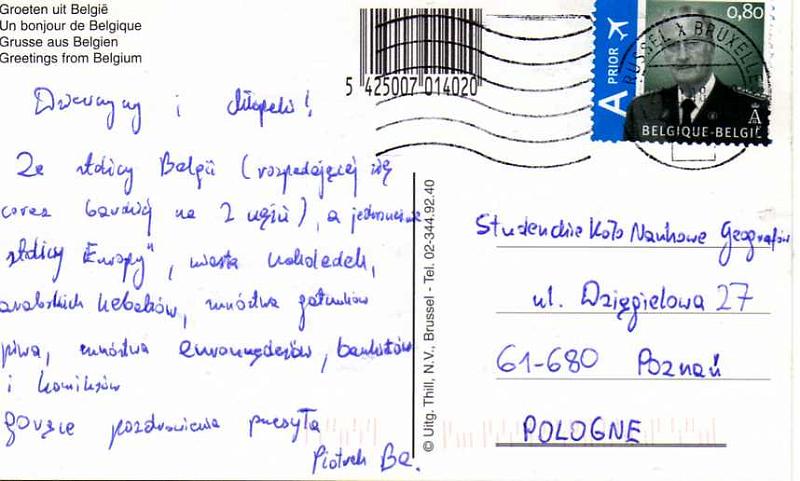 Groeten uit België
Un bonjour de Belgique
Grusse aus Belgien
Greetings from Belgium
5 425007 014020
A PRIOR
0,80
BRUSSEL X BRUXELLES
BELGIQUE-BELGIË
Dziewczyny i chłopaki!
Ze stolicy Belgii (rozpadającej się
coraz bardziej na 2 części), a jednocześnie
"stolicy Europy", miasta czekoladek,
arabskich kebabów, mnóstwa gatunków
piwa, mnóstwa eurourzędasów, bankierów
i komiksów
gorące pozdrowienia przesyła
Piotrek Ba.
© Uitg. Thill, N.V., Brussel - Tel. 02-344.92.40
Studenckie Koło Naukowe Geografów
ul. Dzięgielowa 27
61-680 Poznań
POLOGNE